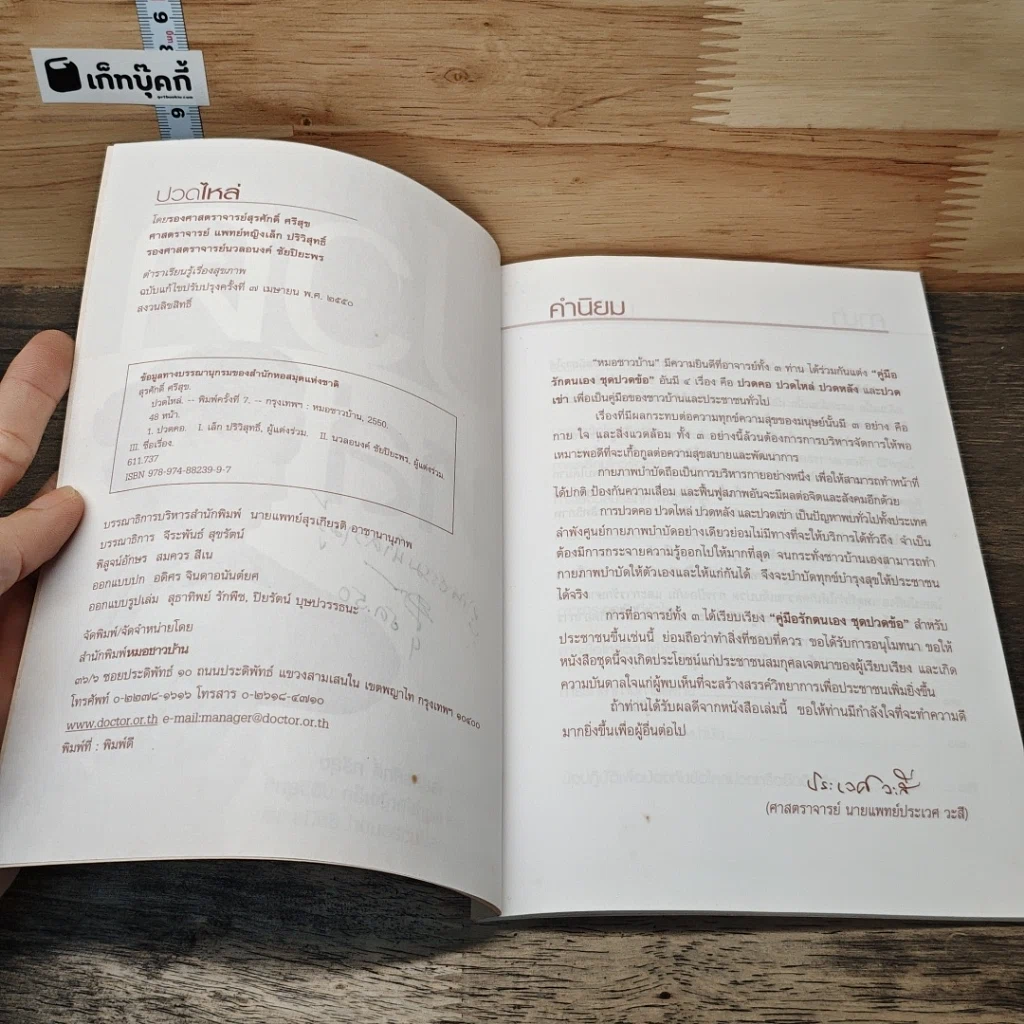 เก็ทบุ๊คกี้
ปวดไหล่
โดยรองศาสตราจารย์สุรศักดิ์ ศรีสุข
ศาสตราจารย์ แพทย์หญิงเล็ก ปริวิสุทธิ์
รองศาสตราจารย์นวลอนงค์ ชัยปิยะพร
ตำราเรียนรู้เรื่องสุขภาพ
ฉบับแก้ไขปรับปรุงครั้งที่ ๗ เมษายน พ.ศ. ๒๕๕๐
สงวนลิขสิทธิ์
ข้อมูลทางบรรณานุกรมของสำนักหอสมุดแห่งชาติ
สุรศักดิ์ ศรีสุข.
ปวดไหล่. -- พิมพ์ครั้งที่ 7. -- กรุงเทพฯ : หมอชาวบ้าน, 2550.
48 หน้า.
1. ปวดคอ. I. เล็ก ปริวิสุทธิ์, ผู้แต่งร่วม. II. นวลอนงค์ ชัยปิยะพร, ผู้แต่งร่วม
III. ชื่อเรื่อง.
611.737
ISBN 978-974-88239-9-7
บรรณาธิการบริหารสำนักพิมพ์ นายแพทย์สุรเกียรติ อาชานานุภาพ
บรรณาธิการ จีระพันธ์ สุขรัตน์
พิสูจน์อักษร สมควร สีเน
ออกแบบปก อดิศร จินดาอนันต์ยศ
ออกแบบรูปเล่ม สุธาทิพย์ รักพืช, ปิยรัตน์ บุษปวรรธนะ
จัดพิมพ์/จัดจำหน่ายโดย
สำนักพิมพ์หมอชาวบ้าน
๓๖/๖ ซอยประดิพัทธ์ ๑๐ ถนนประดิพัทธ์ แขวงสามเสนใน เขตพญาไท กรุงเทพฯ ๑๐๔๐๐
โทรศัพท์ ๐-๒๒๗๘-๑๖๑๖ โทรสาร ๐-๒๖๑๘-๔๗๑๐
www.doctor.or.th e-mail:manager@doctor.or.th
พิมพ์ที่ : พิมพ์ดี
คำนิยม
"หมอชาวบ้าน" มีความยินดีที่อาจารย์ทั้ง ๓ ท่าน ได้ร่วมกันแต่ง "คู่มือ
รักตนเอง ชุดปวดข้อ" อันมี ๔ เรื่อง คือ ปวดคอ ปวดไหล่ ปวดหลัง และปวด
เข่า เพื่อเป็นคู่มือของชาวบ้านและประชาชนทั่วไป
เรื่องที่มีผลกระทบต่อความทุกข์ความสุขของมนุษย์นั้นมี ๓ อย่าง คือ
กาย ใจ และสิ่งแวดล้อม ทั้ง ๓ อย่างนี้ล้วนต้องการการบริหารจัดการให้พอ
เหมาะพอดีที่จะเกื้อกูลต่อความสุขสบายและพัฒนาการ
กายภาพบำบัดถือเป็นการบริหารกายอย่างหนึ่ง เพื่อให้สามารถทำหน้าที่
ได้ปกติ ป้องกันความเสื่อม และฟื้นฟูสภาพอันจะมีผลต่อจิตและสังคมอีกด้วย
การปวดคอ ปวดไหล่ ปวดหลัง และปวดเข่า เป็นปัญหาพบทั่วไปทั้งประเทศ
ลำพังศูนย์กายภาพบำบัดอย่างเดียวย่อมไม่มีทางที่จะให้บริการได้ทั่วถึง จำเป็น
ต้องมีการกระจายความรู้ออกไปให้มากที่สุด จนกระทั่งชาวบ้านเองสามารถทำ
กายภาพบำบัดให้ตัวเองและให้แก่กันได้ จึงจะบำบัดทุกข์บำรุงสุขให้ประชาชน
ได้จริง
การที่อาจารย์ทั้ง ๓ ได้เรียบเรียง "คู่มือรักตนเอง ชุดปวดข้อ" สำหรับ
ประชาชนขึ้นเช่นนี้ ย่อมถือว่าทำสิ่งที่ชอบที่ควร ขอได้รับการอนุโมทนา ขอให้
หนังสือชุดนี้จงเกิดประโยชน์แก่ประชาชนสมกุศลเจตนาของผู้เรียบเรียง และเกิด
ความบันดาลใจแก่ผู้พบเห็นที่จะสร้างสรรค์วิทยาการเพื่อประชาชนเพิ่มยิ่งขึ้น
ถ้าท่านได้รับผลดีจากหนังสือเล่มนี้ ขอให้ท่านมีกำลังใจที่จะทำความดี
มากยิ่งขึ้นเพื่อผู้อื่นต่อไป
ประเวศ วะสี
(ศาสตราจารย์ นายแพทย์ประเวศ วะสี)